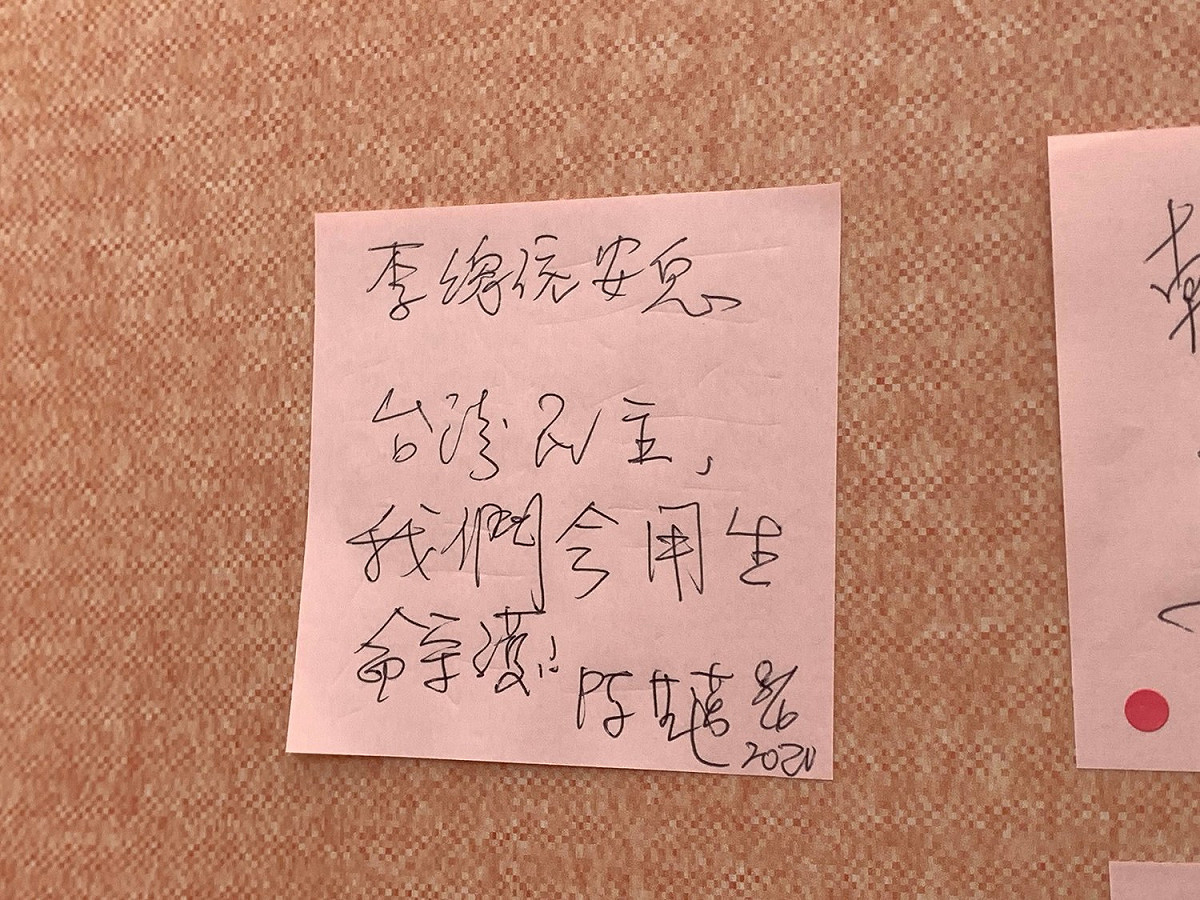 李總統安息
台灣民主,
我們會用生
命守護!!
陳 8/6
2020